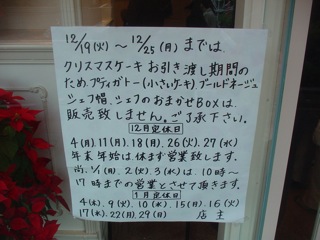 12/19(火)～12/25(月)までは、
クリスマスケーキお引き渡し期間の
ため、プティガトー(小さいケーキ)、ブールドネージュ
シェフ帽、シェフのおまかせBOXは、
販売致しません。ご了承下さい。
12月定休日
4(月)、11(月)、18(月)、26(火)、27(水)
年末年始は、休まず営業致します。
尚、1/1(月)、2(火)、3(水)は、10時～
17時までの営業とさせて頂きます。
1月定休日
4(木)、9(火)、10(水)、15(月)、16(火)
17(水)、22(月)、29(月) 店主